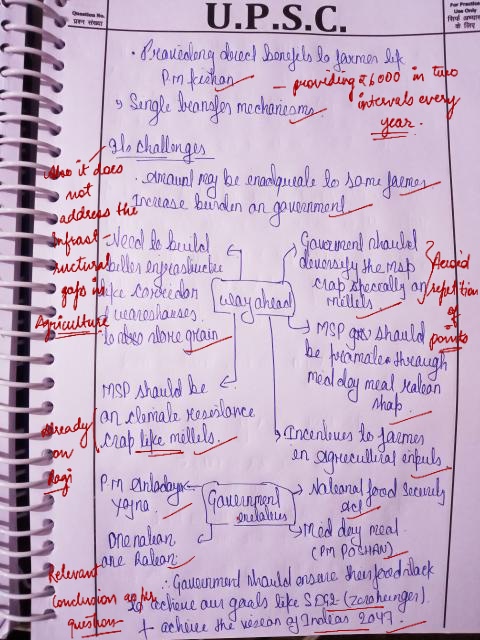 Question No.
प्रश्न संख्या
U.P.S.C.
For Practice
Use Only
सिर्फ अभ्यास
के लिए
• Providing direct benefits to farmer like
P.M kishan
– providing ₹6000 in two
intervals every
year.
→ Single transfer mechanisms
Its challenges
Also it does
not
address the
Infrast
ructural
gaps in
Agriculture
• Amount may be inadiquate to some farmer
Increase burden on government
Need to build
better infrastructure
like corridor
& warehouses
to also store grain
way ahead
Goverment should
diversify the msp
crop specially on
millets
Avoid
repitition
of
points
MSP should
be promote through
mid day meal ration
shop.
MSP should be
on climate resistance
crop like millets.
Already
on
Ragi
Incentives to farmers
in agricultural inputs
P.M Annadaya
Yojna
Government
initiatives
National food security
act
One nation
one Ration
Mid day meal
(PM POSHAN)
Relevant
conclusion as per
question
∴ Government should ensure their food stock
to achieve our goals like SDG2 (zero hunger)
+ achieve the vision of Indias 2047.